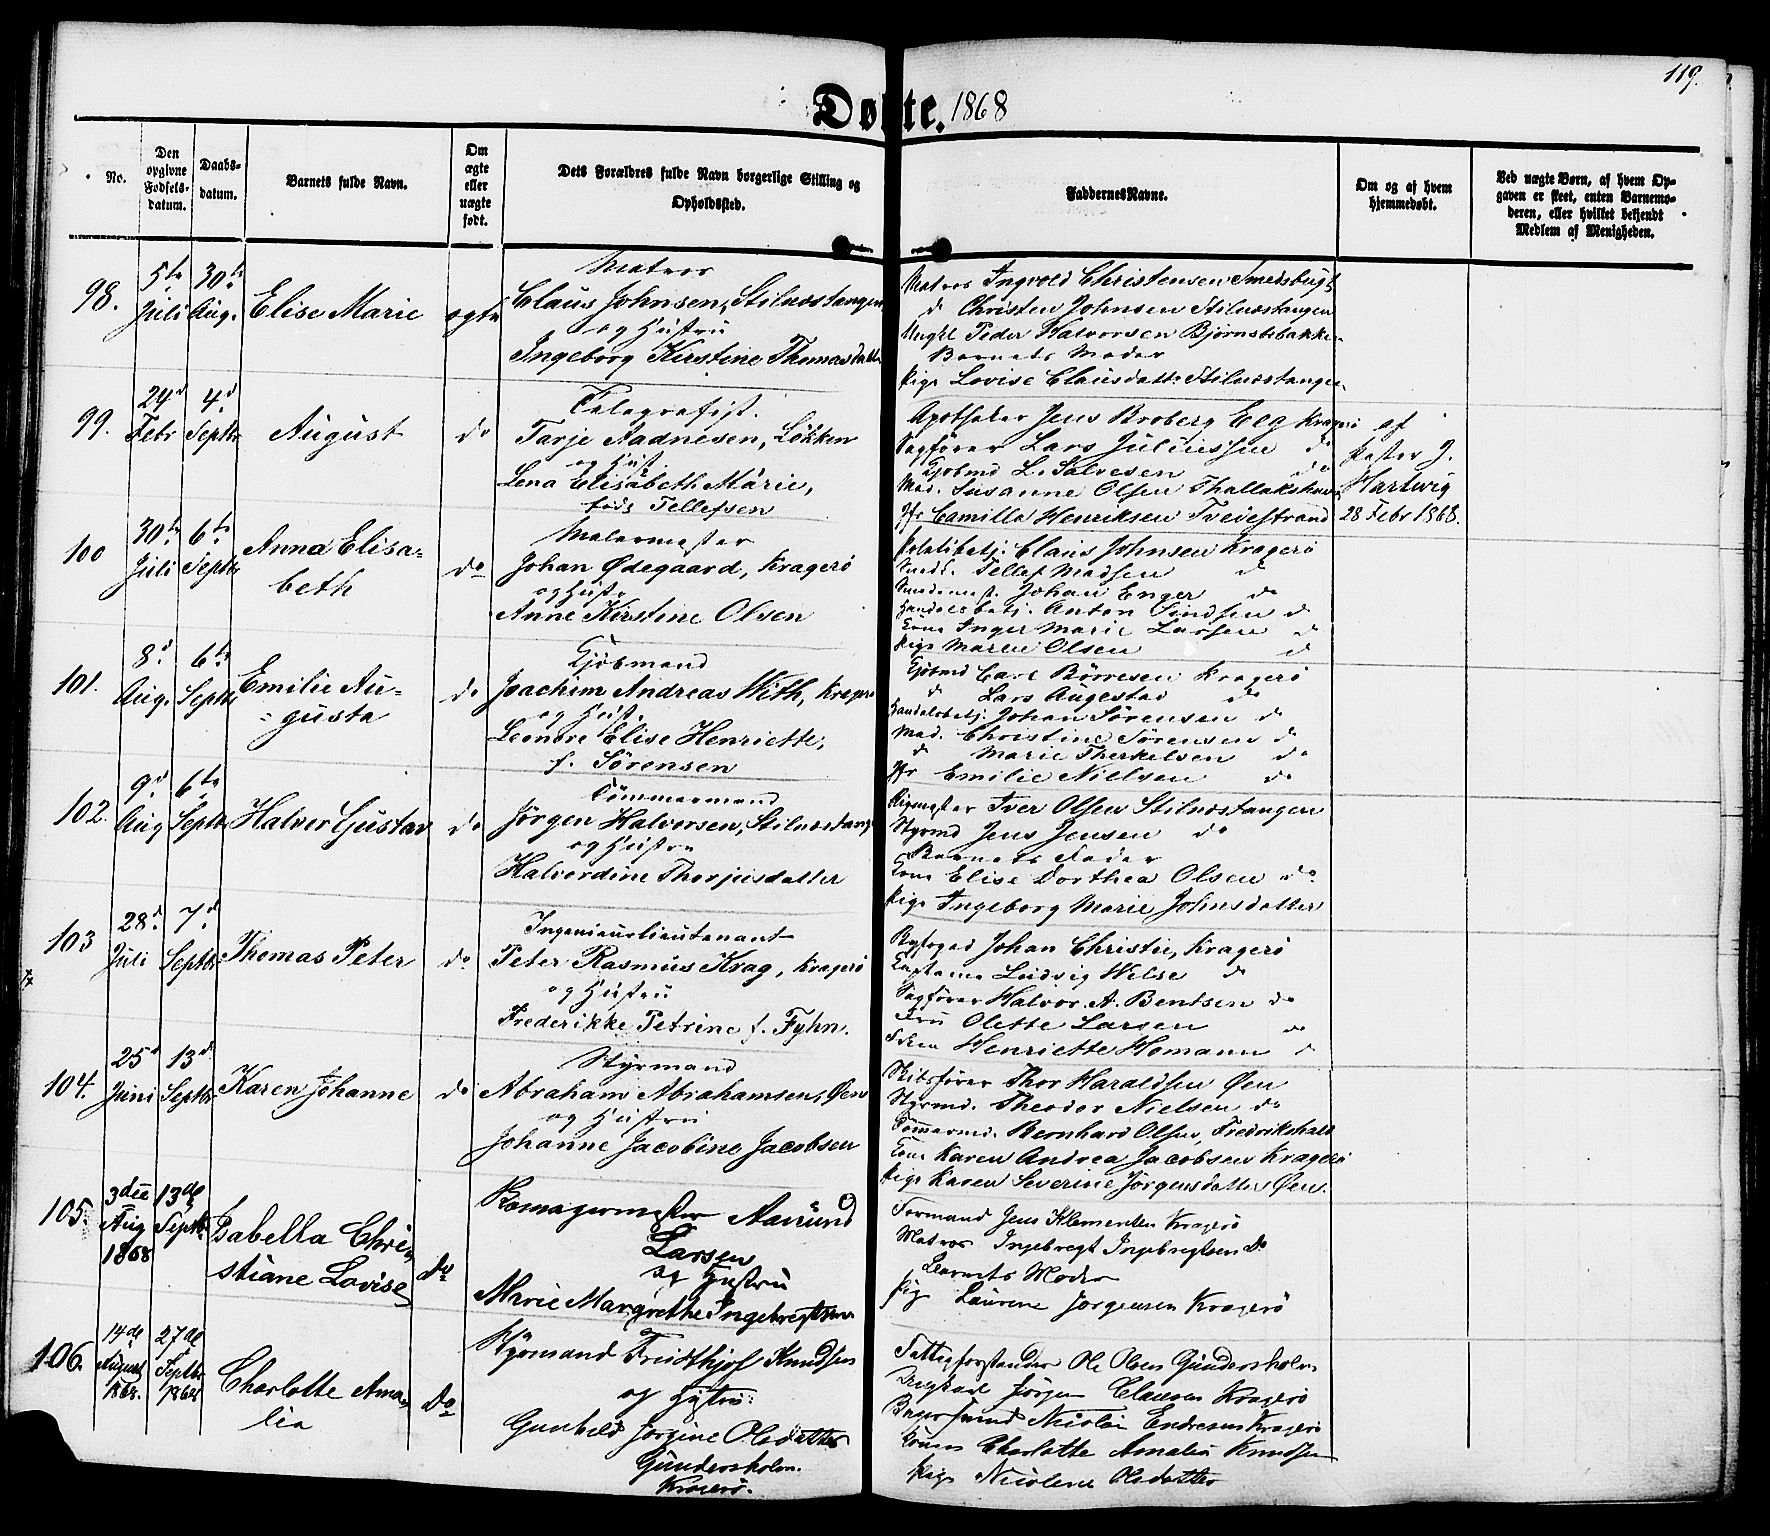 119.
Døbte. 1868
No.
Den opgivne Fødsels-datum.
Daabs-datum.
Barnets fulde Navn.
Om ægte eller uægte født.
Dets Forældres fulde Navn borgerlige Stilling og Opholdssted.
Faddernes Navne.
Om og af hvem hjemmedøbt.
Ved uægte Børn, af hvem Op-gaven er skeet, enten Barnemo-deren, eller hvilket bekjendt Medlem af Menigheden.
98.
5te Juli
30te Aug.
Elise Marie
ægte
Matros
Claus Johnsen, Stilnæstangen
og Hustru
Ingeborg Kirstine Thomasdatter
Matros Ingvold Christensen Smedsbugt
do Christen Johnsen Stilnæstangen
Ungkl Peder Halvorsen Bjørnsbakken
Barnets Moder
Pige Lovise Clausdatt. Stilnæstangen
99.
29d Febr
4d Septbr
August
do
Telegrafist.
Tarje Aadnesen, Løkken
og Hust.
Lena Elisabeth Marie,
føds Tellefsen
Apotheker Jens Broberg Elg Kragerø
Sagfører Lars Juliussen do
Kjøbmd L. Salvesen do
Mad. Susanne Olsen Thallakshavn
Jfr Camilla Henriksen Tvedestrand
af
Pastor J.
Hartwig
28 Febr 1868.
100
30te Juli
6te Septbr
Anna Elisa=
beth
do
Malermester
Johan Ødegaard, Kragerø
og Hustr
Anne Kirstine Olsen
Politibetj. Claus Johnsen Kragerø
Smedk. Tellef Madsen do
Smedemest. Johan Enger do
Handelsbetj. Anton Lindsen do
Kone Inger Marie Larsen do
Pige Maren Olsen do
101.
8d Aug.
6te Septbr
Emilie Au=
=gusta
do
Kjøbmand
Joachim Andreas With, Kragerø
og Hust.
Leonore Elise Henriette,
f. Sørensen
Kjøbmd Carl Børresen Kragerø
do Lars Augestad do
Handelsbetj. Johan Sørensen do
Mad. Christine Sørensen do
do Marie Therkelsen do
Jfr Emilie Nielsen do
102.
9d Aug
6te Septbr
Halvor Gustav
do
Tømmermand
Jørgen Halvorsen, Stilnæstang
og Hustru
Halvordine Thorjusdatter
Rigmester Iver Olsen Stilnæstangen
Styrmd Jens Jensen do
Barnets Fader
Kone Elise Dorthea Olsen do
Pige Ingeborg Marie Johnsdatter
103
28d Juli
7d Septbr
Thomas Peter
do
Ingenieurlieutenant
Peter Rasmus Krag, Kragerø
og Hustru
Frederikke Petrine f. Fyhn.
Byfoged Johan Christie, Kragerø
Kaptein Ludvig Wilse do
Sagfører Halvor A. Bentsen do
Fru Olette Larsen do
Frkn Henriette Homann do
104.
25d Juni
13d Septbr
Karen Johanne
do
Styrmand
Abraham Abrahamsen, Øen
og Hustru
Johanne Jacobine Jacobsen
Skibsfører Thor Haraldsen Øen
Styrmd. Theodor Nielsen do
Tømmermd. Bernhard Olsen, Fredrikshald
Kone Karen Andrea Jacobsen Kragerø
Pige Karen Severine Jørgensdatter Øen.
105.
3die Aug 1868
13de Septbr
Isabella Chri=
stiane Lovise
Do
Larsen
og Hustru
Marie Margrethe Ingebregtsen
Formand Jens Klementsen Kragerø
Matros Ingebregt Ingebregtsen Do
Barnets Moder
Pige Laurene Jørgensen Kragerø
106.
14de August 1868.
27de Septbr 1868
Charlotte Ama=
lia
Do
Styrmand Fridthjof Knudsen
og Hustru:
Gunhild Jørgine Olsdatter
Gundersholm.
Kragerø.
Fattigforstander Ole Olsen Gundersholm
Ungkarl Jørgen Clausen Kragerø
Nicolai Endresen Kragerø
Konen Charlotte Amalie Knudsen
Pige Nicoline Olsdatter